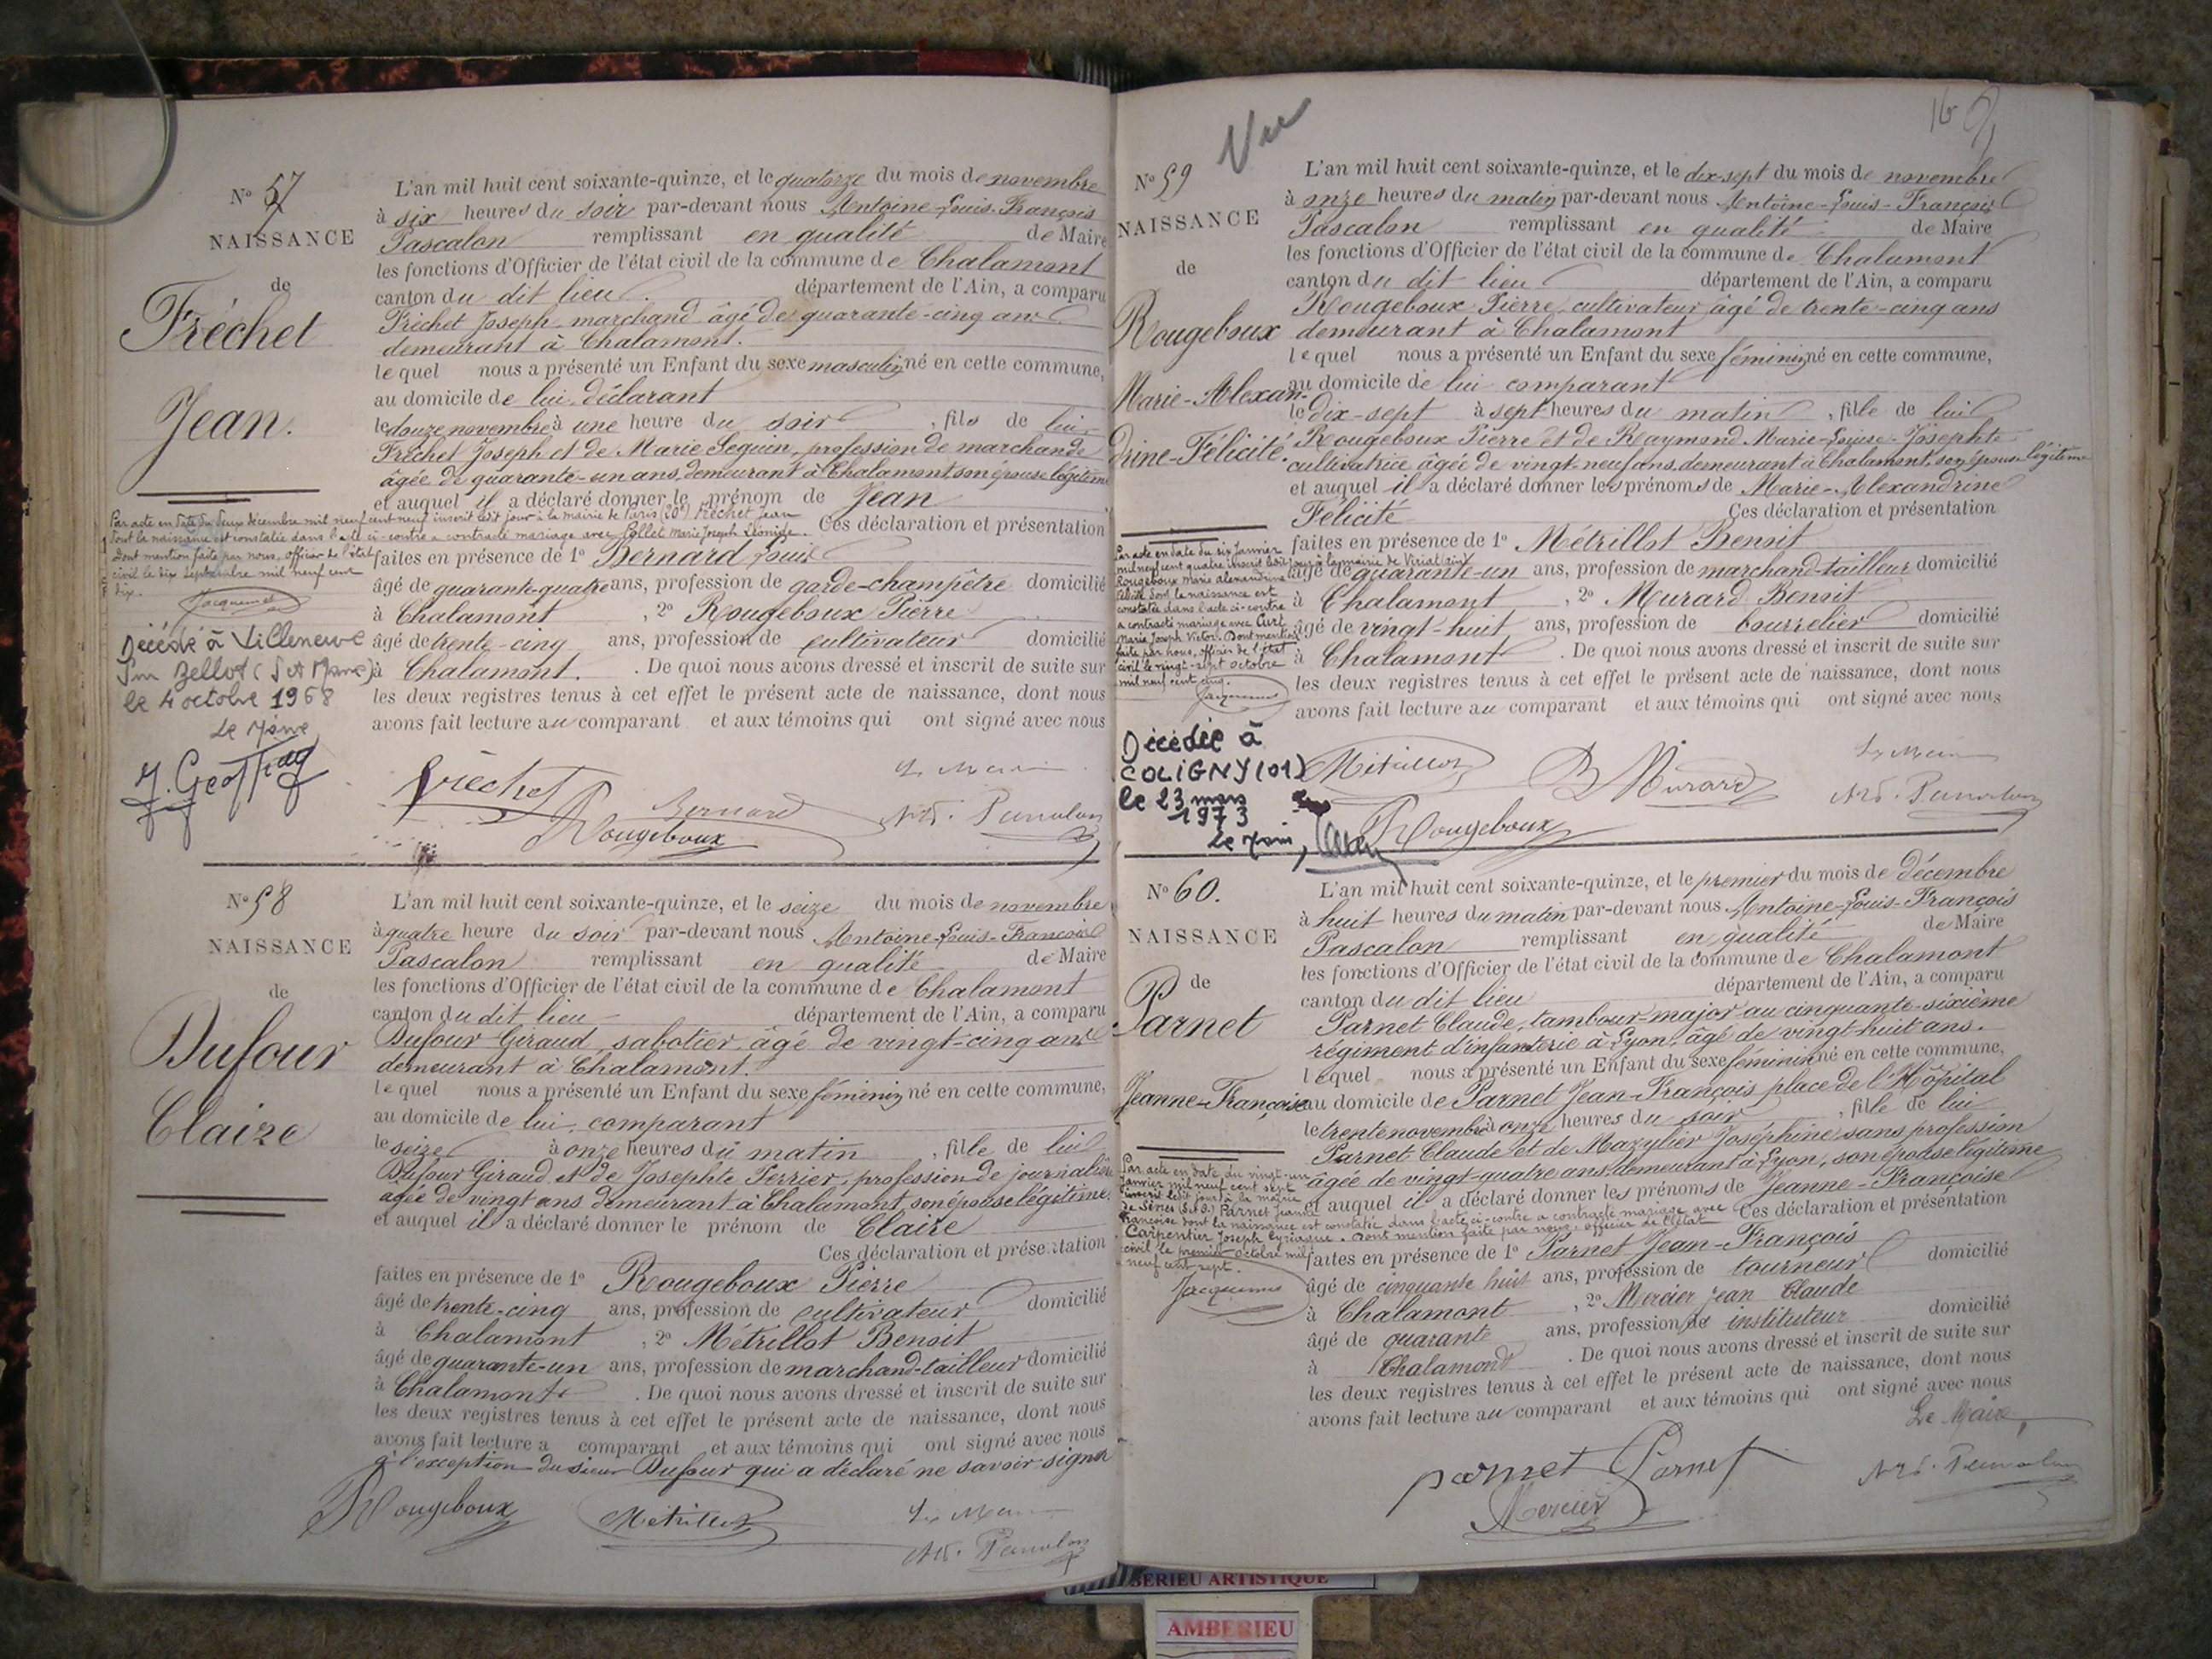 N° 57
NAISSANCE
de
Fréchet
Jean.
L'an mil huit cent soixante-quinze, et le quatorze du mois de novembre
à six heures du soir par-devant nous Antoine-Louis-François
Pascalon remplissant en qualité de Maire
les fonctions d'Officier de l'état civil de la commune de Chalamont
canton du dit lieu. département de l'Ain, a comparu
Fréchet Joseph marchand âgé de quarante-cinq ans
demeurant à Chalamont.
lequel nous a présenté un Enfant du sexe masculin né en cette commune,
au domicile de lui déclarant
le douze novembre à une heure du soir, fils de lui
Fréchet Joseph et de Marie Seguin, profession de marchande
âgée de quarante-un ans, demeurant à Chalamont, son épouse légitime
et auquel il a déclaré donner le prénom de Jean
Ces déclaration et présentation
faites en présence de 1° Bernard Louis
âgé de quarante-quatre ans, profession de garde-champêtre domicilié
à Chalamont, 2° Rougeboux Pierre
âgé de trente-cinq ans, profession de cultivateur domicilié
à Chalamont. . De quoi nous avons dressé et inscrit de suite sur
les deux registres tenus à cet effet le présent acte de naissance, dont nous
avons fait lecture au comparant et aux témoins qui ont signé avec nous
Par acte en date du deux décembre mil neuf cent neuf inscrit ledit jour à la mairie de Paris (20e) Fréchet Jean
dont la naissance est constatée dans l'acte ci-contre a contracté mariage avec Collet Marie Joseph Léonide.
Dont mention faite par nous, officier de l'état
civil le dix septembre mil neuf cent
dix.
Jacquemus
Décédé à Villeneuve
Sur Bellot (S et Marne)
le 4 octobre 1968
Le Maire
J. Geoffray
Fréchet
Bernard
Rougeboux
Le Maire
Pascalon
N° 58
NAISSANCE
de
Dufour
Claire
L'an mil huit cent soixante-quinze, et le seize du mois de novembre
à quatre heure du soir par-devant nous Antoine-Louis-François
Pascalon remplissant en qualité de Maire
les fonctions d'Officier de l'état civil de la commune de Chalamont
canton du dit lieu département de l'Ain, a comparu
Dufour Giraud, sabotier, âgé de vingt-cinq ans
demeurant à Chalamont.
lequel nous a présenté un Enfant du sexe féminin né en cette commune,
au domicile de lui, comparant
le seize à onze heures du matin, fille de lui
Dufour Giraud, et de Josephte Perrier, profession de journalière
agée de vingt ans demeurant à Chalamont, son épouse légitime.
et auquel il a déclaré donner le prénom de Claire
Ces déclaration et présentation
faites en présence de 1° Rougeboux Pierre
âgé de trente-cinq ans, profession de cultivateur domicilié
à Chalamont, 2° Métrillot Benoit
âgé de quarante-un ans, profession de marchand-tailleur domicilié
à Chalamont . De quoi nous avons dressé et inscrit de suite sur
les deux registres tenus à cet effet le présent acte de naissance, dont nous
avons fait lecture a comparant et aux témoins qui ont signé avec nous
à l'exception du sieur Dufour qui a déclaré ne savoir signer
Rougeboux
Métrillot
Le Maire
Pascalon
Vu
16
N° 59
NAISSANCE
de
Rougeboux
Marie-Alexan-
drine-Félicité.
L'an mil huit cent soixante-quinze, et le dix-sept du mois de novembre
à onze heures du matin par-devant nous Antoine-Louis-François
Pascalon remplissant en qualité de Maire
les fonctions d'Officier de l'état civil de la commune de Chalamont
canton du dit lieu département de l'Ain, a comparu
Rougeboux Pierre, cultivateur âgé de trente-cinq ans
demeurant à Chalamont
lequel nous a présenté un Enfant du sexe féminin né en cette commune,
au domicile de lui comparant
le dix-sept à sept heures du matin, fille de lui
Rougeboux Pierre et de Raymond Marie-Louise-Josephte
cultivatrice âgée de vingt-neuf ans, demeurant à Chalamont, son épouse légitime
et auquel il a déclaré donner les prénoms de Marie-Alexandrine
Félicité Ces déclaration et présentation
faites en présence de 1° Métrillot Benoit
âgé de quarante-un ans, profession de marchand-tailleur domicilié
à Chalamont, 2° Murard Benoit
âgé de vingt-huit ans, profession de bourrelier domicilié
à Chalamont . De quoi nous avons dressé et inscrit de suite sur
les deux registres tenus à cet effet le présent acte de naissance, dont nous
avons fait lecture au comparant et aux témoins qui ont signé avec nous
Par acte en date du six janvier
mil neuf cent quatre inscrit ledit jour à la mairie de Viriat (Ain)
Rougeboux Marie Alexandrine
Félicité dont la naissance est
constatée dans l'acte ci-contre
a contracté mariage avec Curt
Marie Joseph Victor. Dont mention
faite par nous, officier de l'état
civil le vingt-sept octobre
mil neuf cent cinq.
Jacquemus
Décédée à
COLIGNY (01)
le 23 mars
1973
Le Maire,
Métrillot
B Murard
Rougeboux
Le Maire
Pascalon
N° 60.
NAISSANCE
de
Parnet
Jeanne-Françoise
L'an mil huit cent soixante-quinze, et le premier du mois de décembre
à huit heures du matin par-devant nous Antoine-Louis-François
Pascalon remplissant en qualité de Maire
les fonctions d'Officier de l'état civil de la commune de Chalamont
canton du dit lieu département de l'Ain, a comparu
Parnet Claude, tambour-major au cinquante-sixième
régiment d'infanterie à Lyon, âgé de vingt-huit ans.
lequel nous a présenté un Enfant du sexe féminin né en cette commune,
au domicile de Parnet Jean-François place de l'Hôpital
le trente novembre à onze heures du soir, fille de lui
Parnet Claude et de Mazuyer Joséphine sans profession
âgée de vingt-quatre ans demeurant à Lyon, son épouse légitime
et auquel il a déclaré donner les prénoms de Jeanne-Françoise
Ces déclaration et présentation
faites en présence de 1° Parnet Jean-François
âgé de cinquante huit ans, profession de tourneur domicilié
à Chalamont, 2° Mercier Jean Claude
âgé de quarante ans, profession de instituteur domicilié
à Chalamont . De quoi nous avons dressé et inscrit de suite sur
les deux registres tenus à cet effet le présent acte de naissance, dont nous
avons fait lecture au comparant et aux témoins qui ont signé avec nous
Par acte en date du vingt-un
janvier mil neuf cent sept
inscrit ledit jour à la mairie
de Sèvres (S.&O.) Parnet Jeanne
Françoise dont la naissance est constatée dans l'acte ci-contre a contracté mariage avec
Carpentier Joseph Cyriaque. Dont mention faite par nous, officier de l'état
civil le premier octobre mil
neuf cent sept.
Jacquemus
Le Maire,
parnet Parnet
Mercier
Pascalon
BERIEU ARTISTIQUE
AMBERIEU